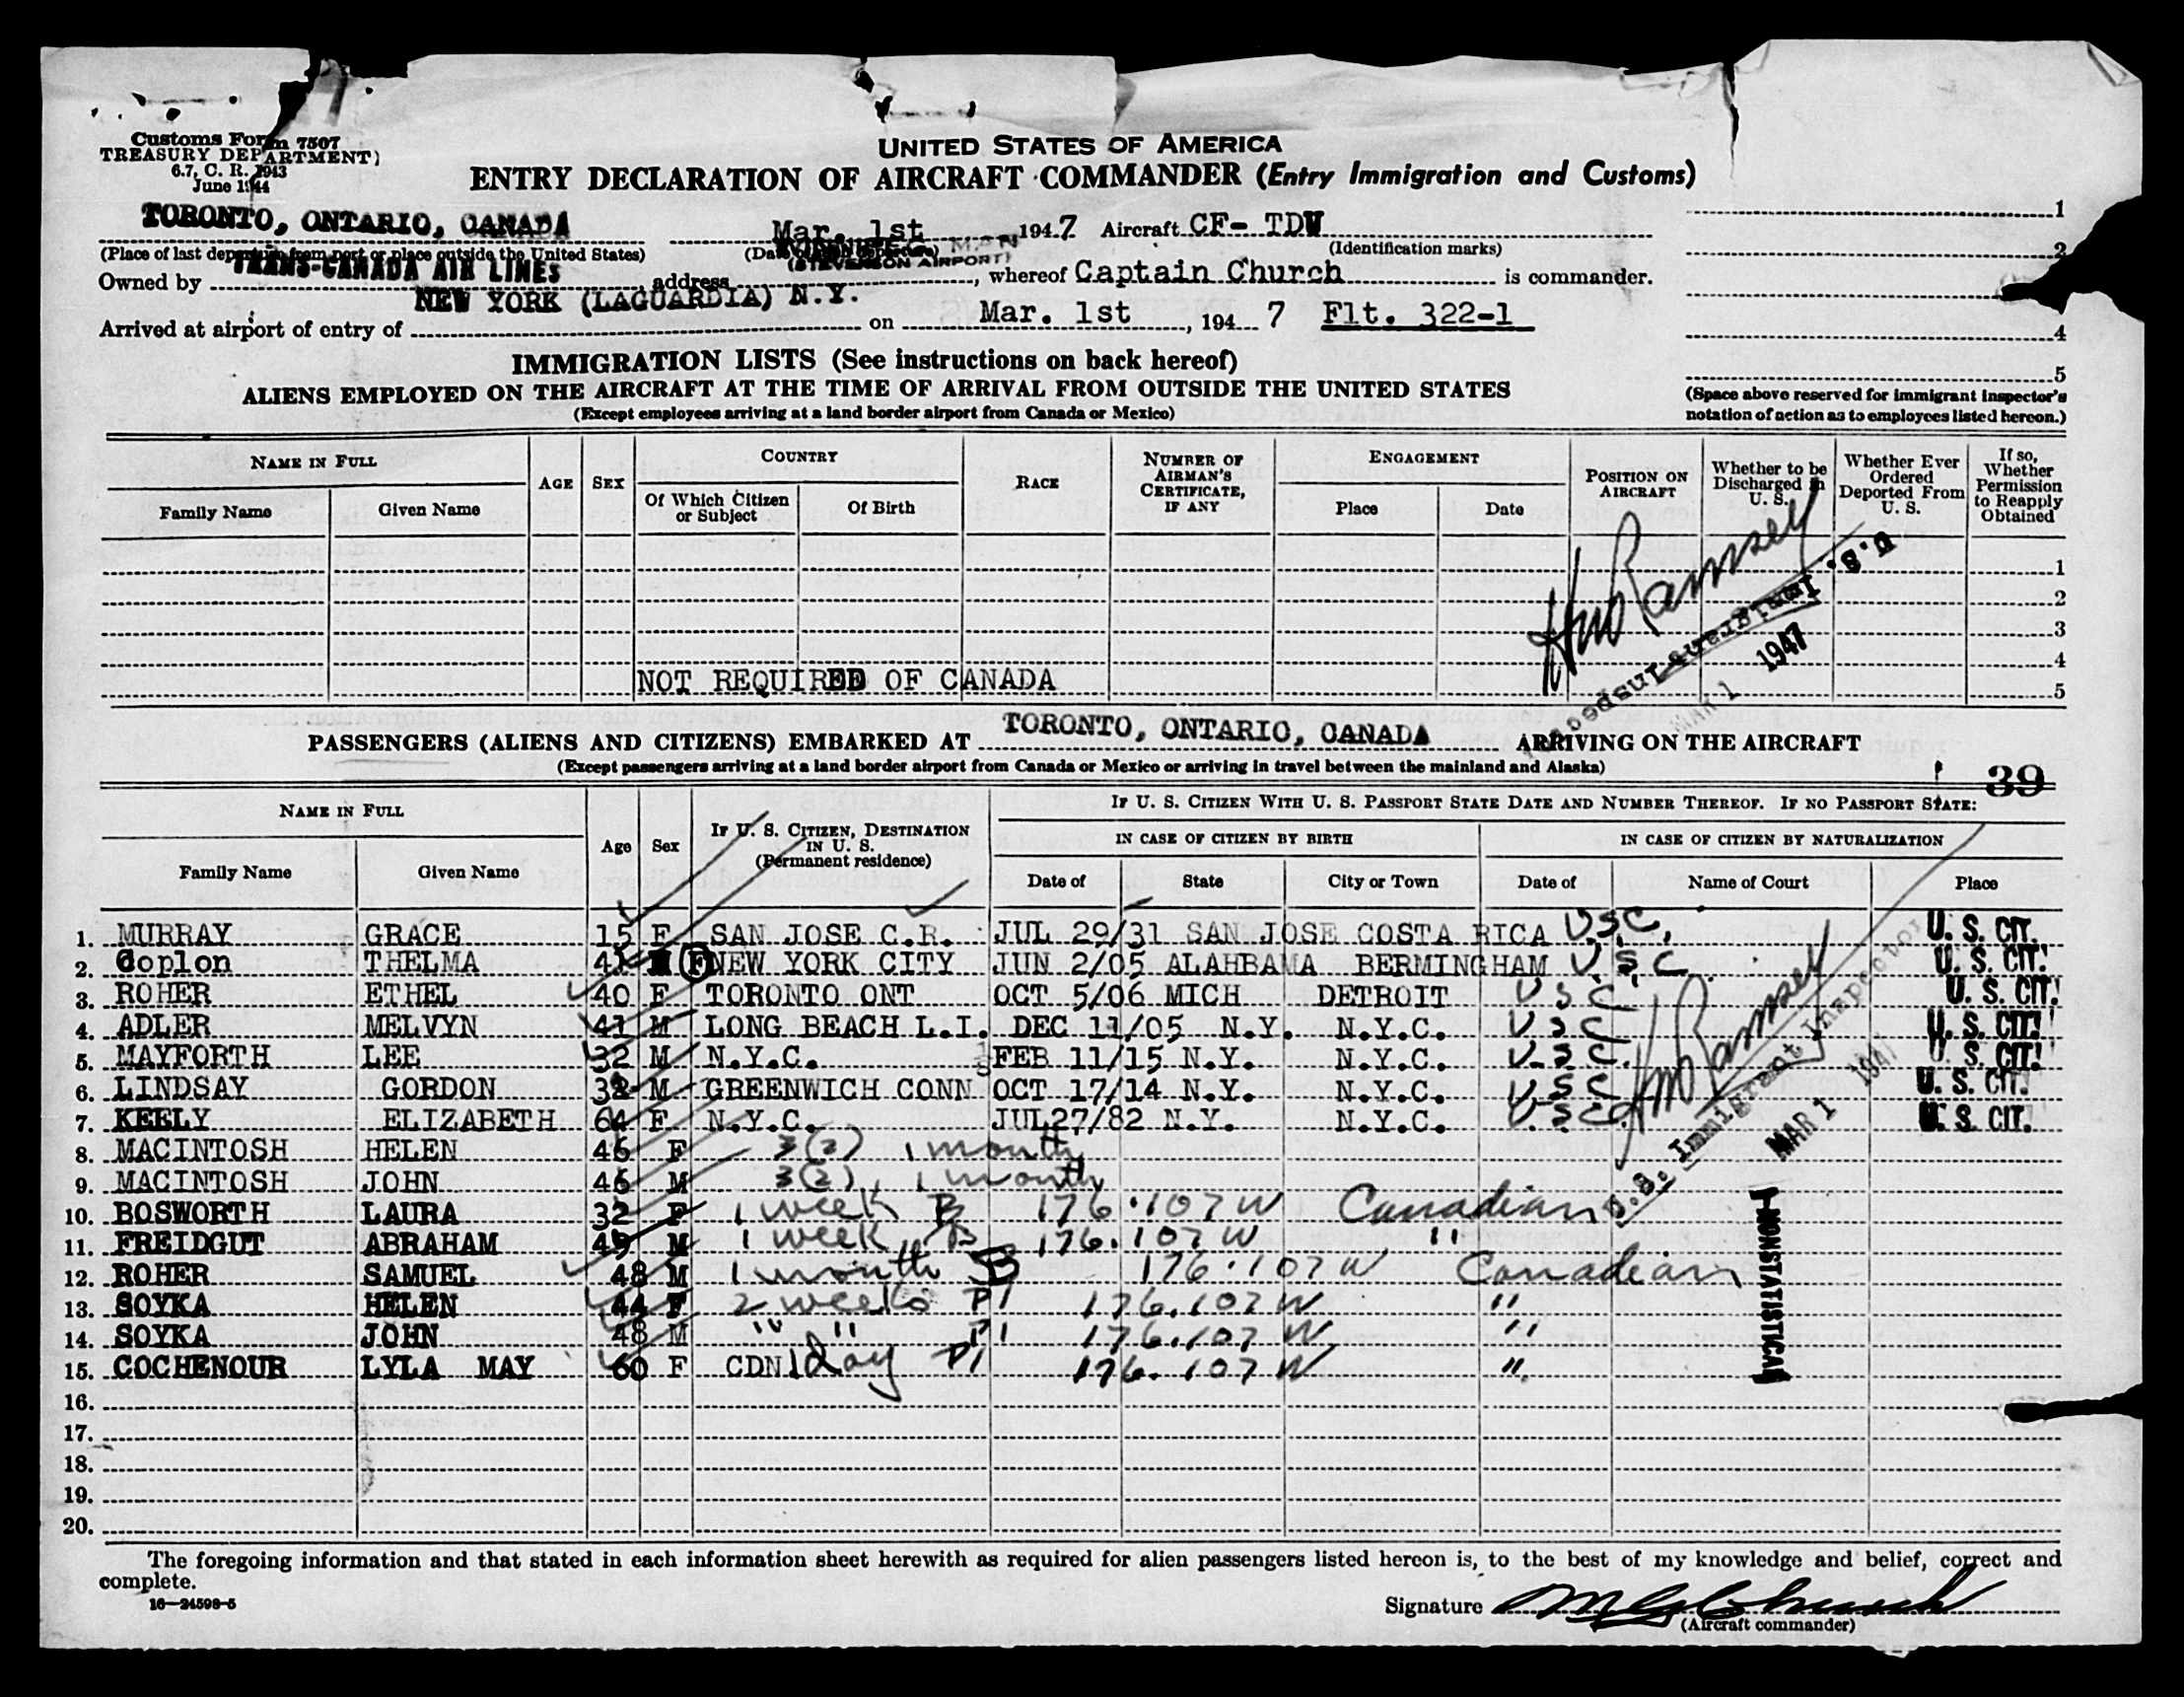 Customs Form 7507
TREASURY DEPARTMENT)
6.7, C. R. 1943
June 1944
UNITED STATES OF AMERICA
ENTRY DECLARATION OF AIRCRAFT COMMANDER (Entry Immigration and Customs)
TORONTO, ONTARIO, CANADA Mar. 1st 1947 Aircraft CF- TDW 1
(Place of last departure from port or place outside the United States) (Identification marks) 2
(STEVENSON AIRPORT)
Owned by TRANS-CANADA AIR LINES address , whereof Captain Church is commander.
Arrived at airport of entry of NEW YORK (LAGUARDIA) N.Y. on Mar. 1st, 194 7 Flt. 322-1 4
IMMIGRATION LISTS (See instructions on back hereof) 5
ALIENS EMPLOYED ON THE AIRCRAFT AT THE TIME OF ARRIVAL FROM OUTSIDE THE UNITED STATES
(Except employees arriving at a land border airport from Canada or Mexico)
(Space above reserved for immigrant inspector's
notation of action as to employees listed hereon.)
NAME IN FULL AGE SEX COUNTRY RACE NUMBER OF AIRMAN'S CERTIFICATE, IF ANY ENGAGEMENT POSITION ON AIRCRAFT Whether to be Discharged in U. S. Whether Ever Ordered Deported From U. S. If so, Whether Permission to Reapply Obtained
Family Name Given Name Of Which Citizen or Subject Of Birth Place Date
1
2
3
4
NOT REQUIRED OF CANADA 5
HW Ramsey
U.S. Immigrant Inspector
MAR 1 1947
PASSENGERS (ALIENS AND CITIZENS) EMBARKED AT TORONTO, ONTARIO, CANADA ARRIVING ON THE AIRCRAFT
(Except passengers arriving at a land border airport from Canada or Mexico or arriving in travel between the mainland and Alaska)
39
NAME IN FULL Age Sex IF U. S. CITIZEN, DESTINATION IN U. S. (Permanent residence) IF U. S. CITIZEN WITH U. S. PASSPORT STATE DATE AND NUMBER THEREOF. IF NO PASSPORT STATE:
IN CASE OF CITIZEN BY BIRTH IN CASE OF CITIZEN BY NATURALIZATION
Family Name Given Name Date of State City or Town Date of Name of Court Place
1. MURRAY GRACE 15 F SAN JOSE C.R. JUL 29/31 SAN JOSE COSTA RICA USC, U. S. CIT.
2. Coplon THELMA 41 F NEW YORK CITY JUN 2/05 ALAHBAMA BERMINGHAM USC U. S. CIT.
3. ROHER ETHEL 40 F TORONTO ONT OCT 5/06 MICH DETROIT USC U. S. CIT.
4. ADLER MELVYN 41 M LONG BEACH L.I. DEC 11/05 N.Y. N.Y.C. USC U. S. CIT.
5. MAYFORTH LEE 32 M N.Y.C. FEB 11/15 N.Y. N.Y.C. USC. U. S. CIT.
6. LINDSAY GORDON 32 M GREENWICH CONN OCT 17/14 N.Y. N.Y.C. USC U. S. CIT.
7. KEELY ELIZABETH 64 F N.Y.C. JUL27/82 N.Y. N.Y.C. USC. U. S. CIT.
8. MACINTOSH HELEN 46 F 3(2) 1 month
9. MACINTOSH JOHN 46 M 3(2), 1 month
10. BOSWORTH LAURA 32 F 1 week B 176.107W Canadian
11. FREIDGUT ABRAHAM 49 M 1 week B 176.107W "
12. ROHER SAMUEL 48 M 1 month B 176.107W Canadian
13. SOYKA HELEN 44 F 2 weeks P1 176.107W "
14. SOYKA JOHN 48 M " " P1 176.107W "
15. COCHENOUR LYLA MAY 60 F CDN 1 day P1 176.107W "
HW Ramsey
U.S. Immigrant Inspector
MAR 1 1947
NONSTATISTICAL
16.
17.
18.
19.
20.
The foregoing information and that stated in each information sheet herewith as required for alien passengers listed hereon is, to the best of my knowledge and belief, correct and
complete.
16—24598-5
Signature M G Church
(Aircraft commander)